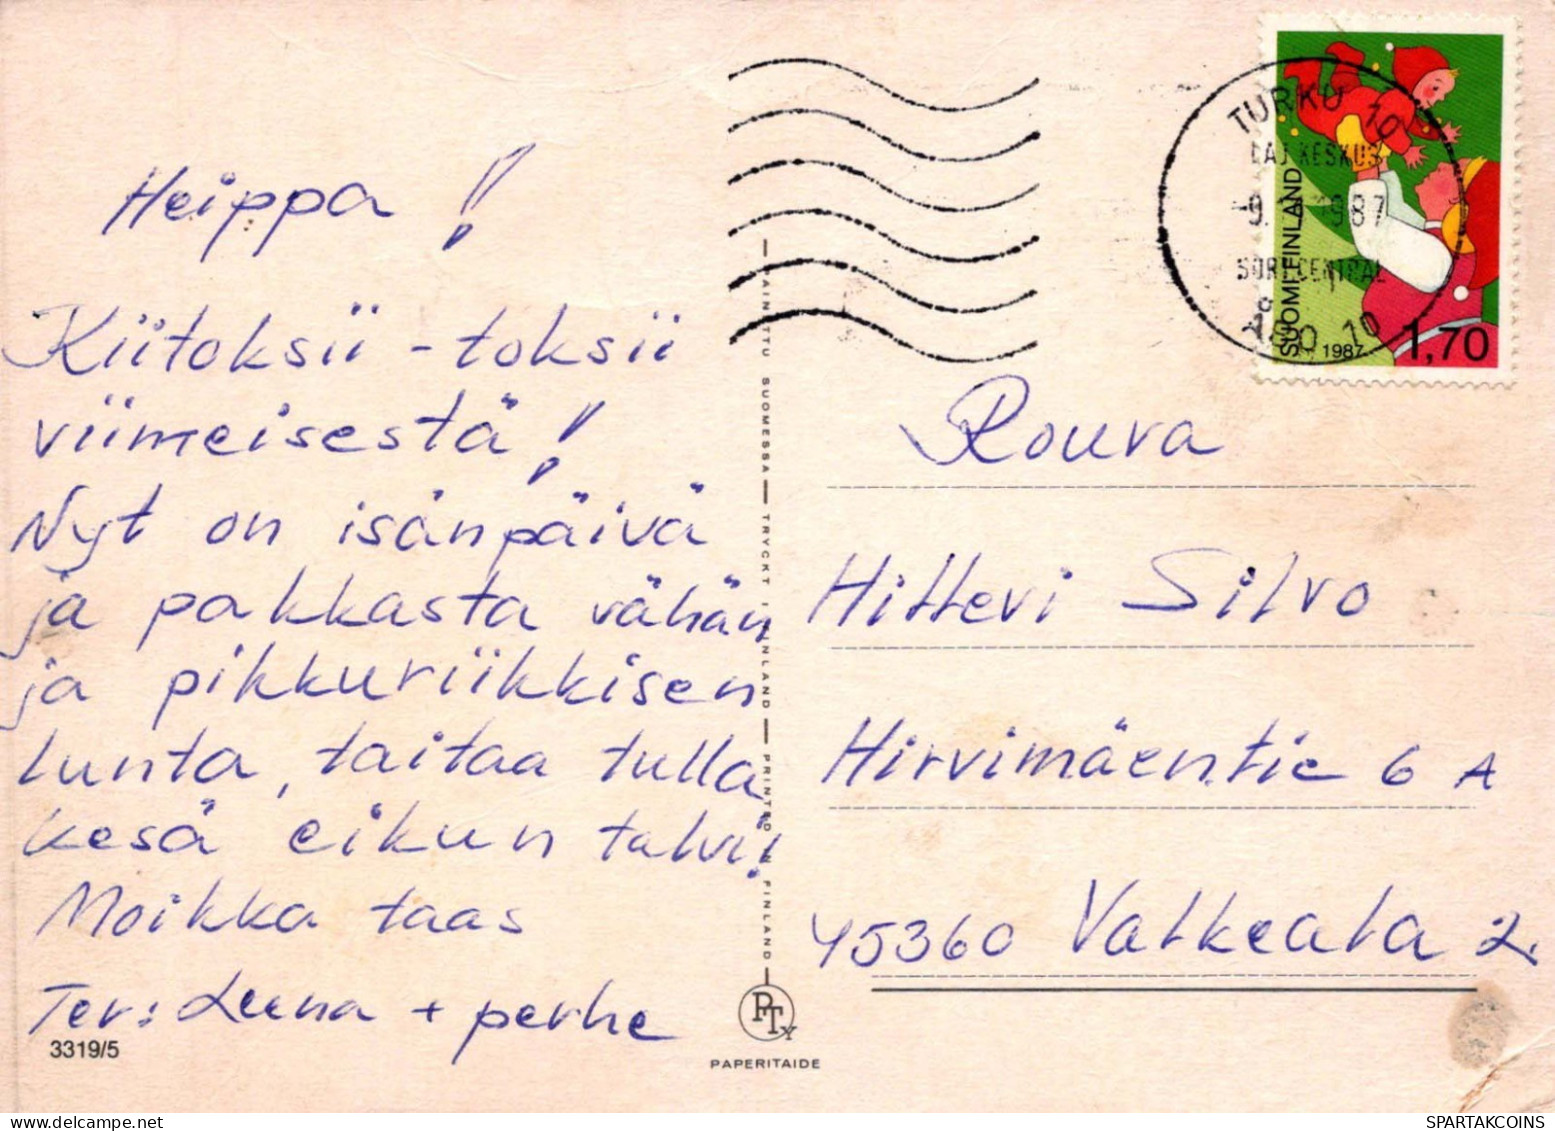 Heippa!
Kiitoksii - toksii
viimeisestä!
Nyt on isänpäivä
ja pakkasta vähän
ja pikkuriikkisen
lunta, taitaa tulla
kesä eikun talvi!
Moikka taas
Ter: Leena + perhe
3319/5
PAINETTU SUOMESSA — TRYCKT I FINLAND — PRINTED IN FINLAND
PTy
PAPERITAIDE
TURKU 10
LAJ.KESKUS
1987
SORT.CENTRAL
ÅBO 10
SUOMI FINLAND
1987
1,70
Rouva
Hillevi Silvo
Hirvimäentie 6 A
45360 Valkeala 2.
SPARTAKCOINS